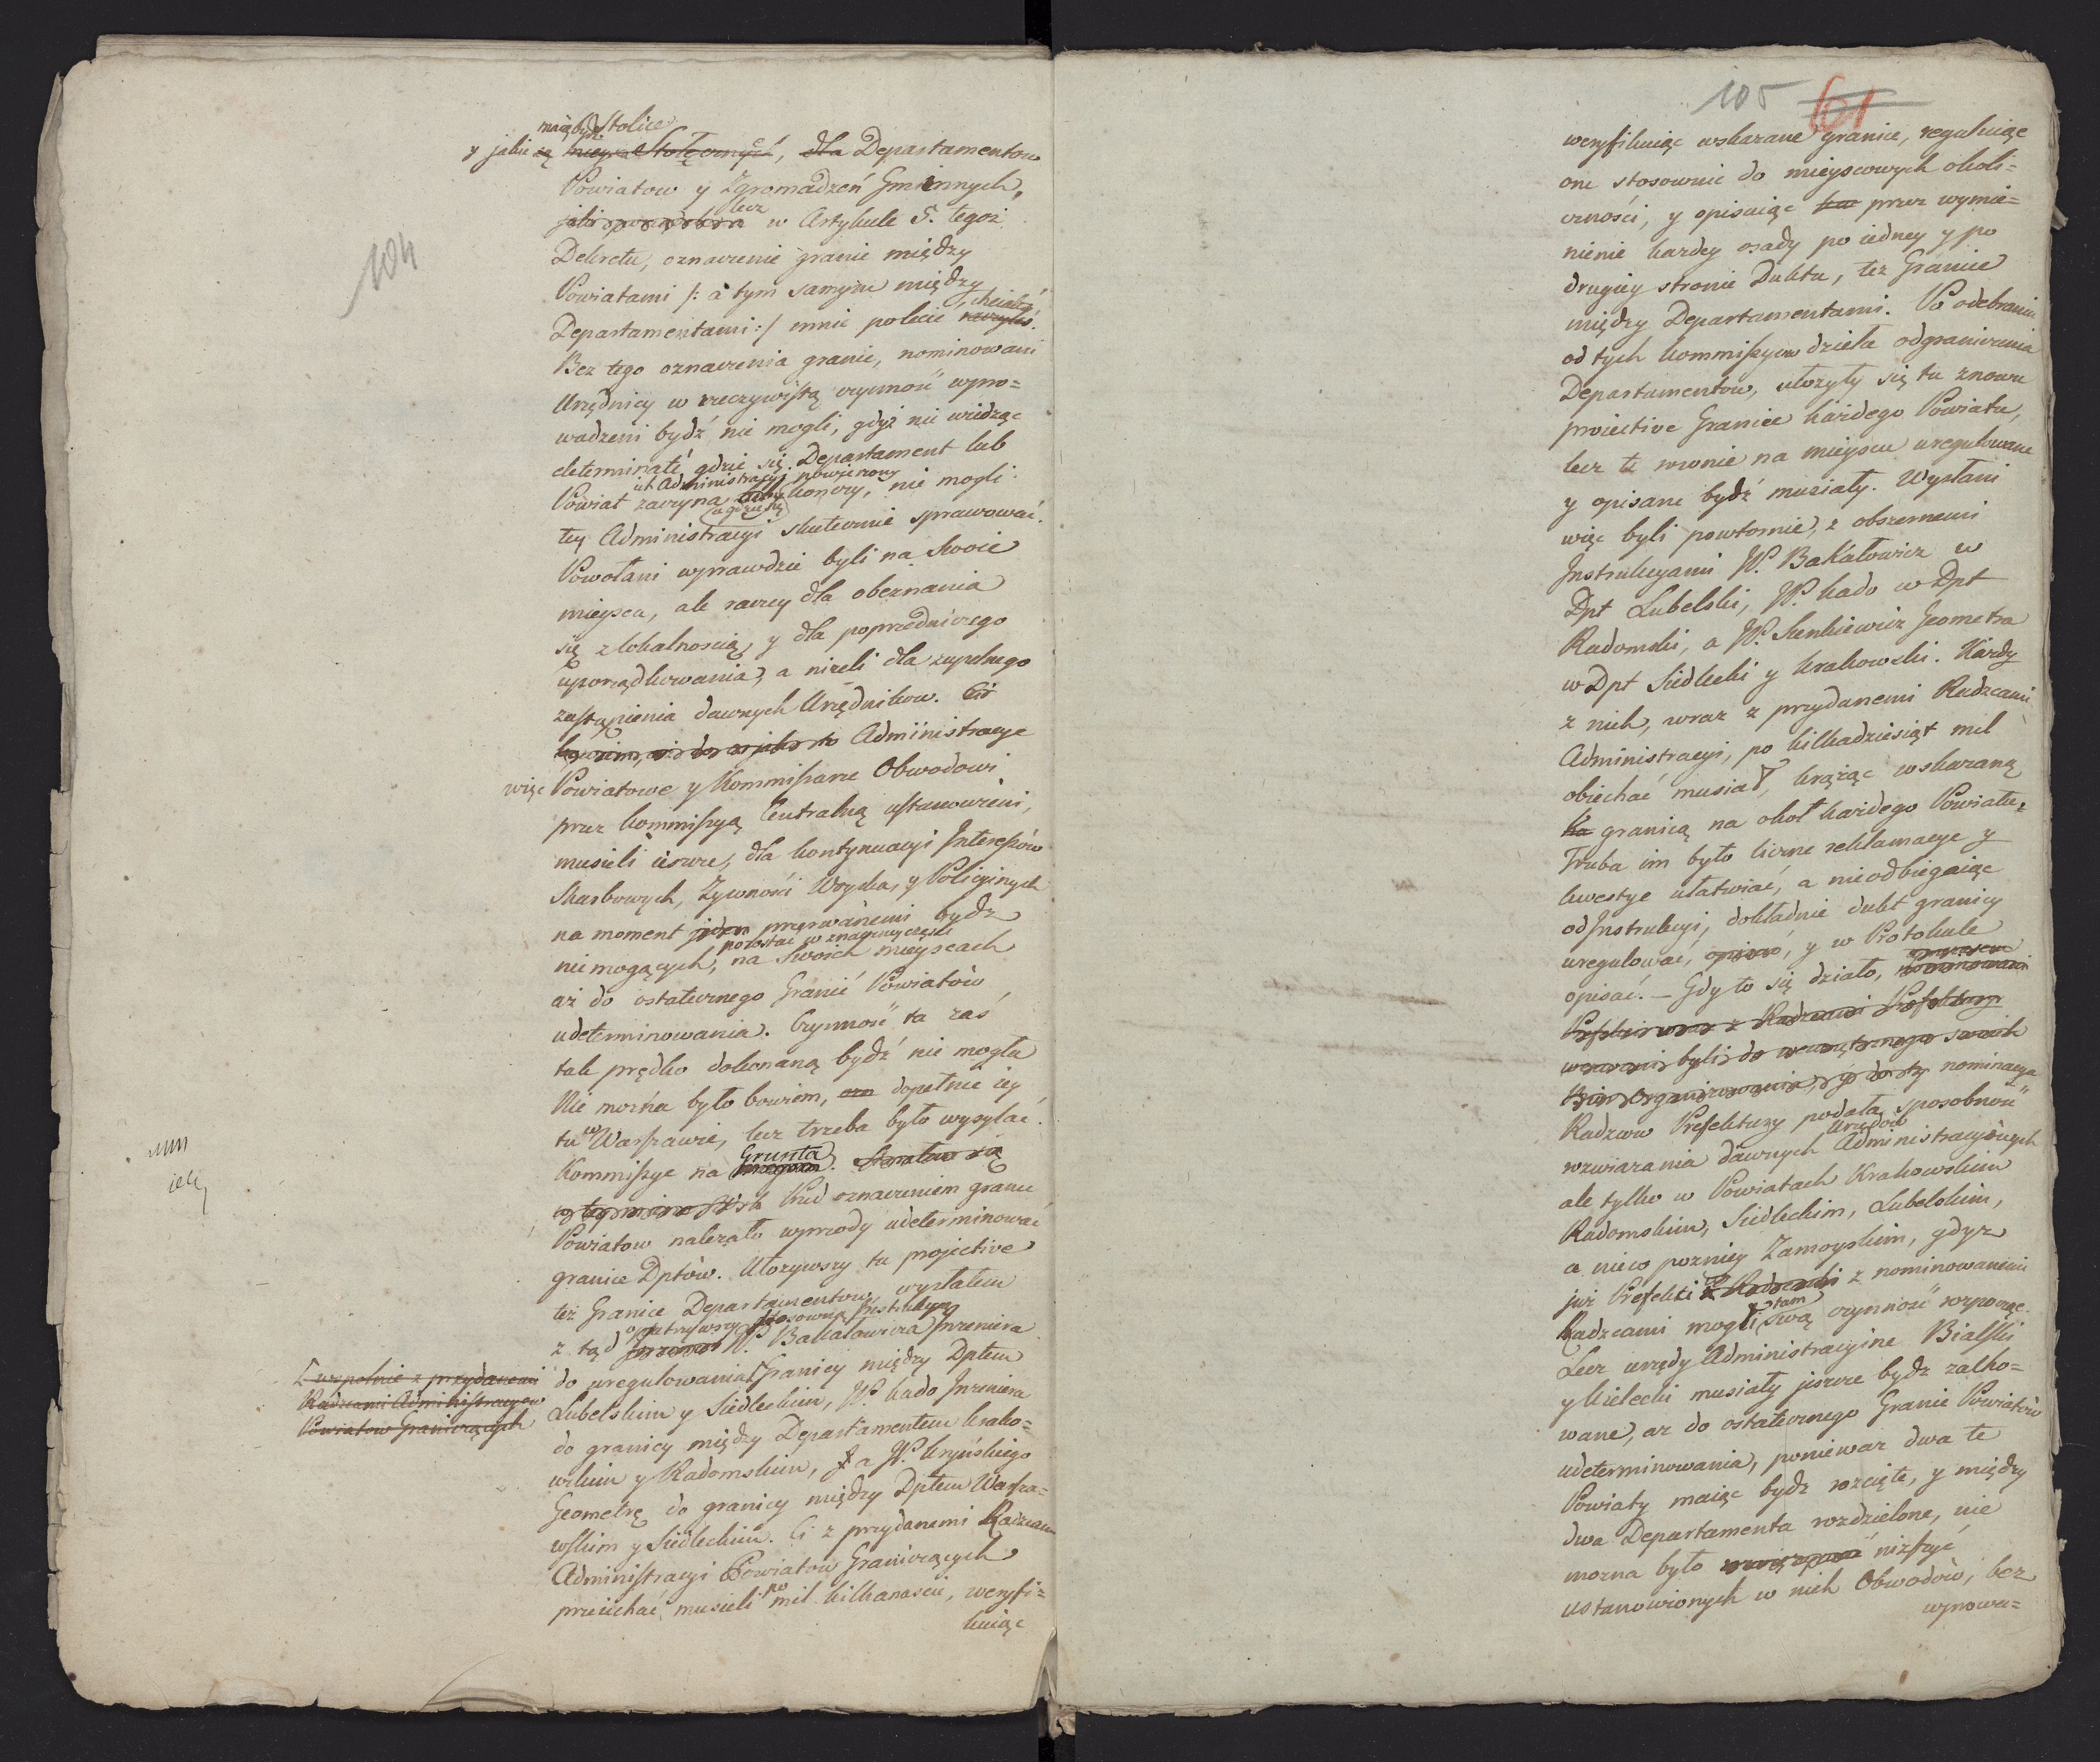 104
mają być Stolice
y jakie są mieysca Stołecznych, dla Departamentow
Powiatow y Zgromadzeń Gminnych,
lecz
w Artykule 5. tegoż
Dekretu, oznaczenie granic między
Powiatami /: a tym samym między
Departamentami :/ mnie polecić chciałeś.
Bez tego oznaczenia granic, nominowani
Urzędnicy w rzeczywistą czynność wpro=
wadzeni bydź nie mogli, gdyż nie wiedząc
determinatè gdzie się Departament lub
ich Administracyi powierzony
Powiat zaczyna a gdzie się kończy, nie mogli
tey Administracyi skutecznie sprawować.
Powołani wprawdzie byli na swoie
mieysca, ale raczey dla obeznania
się z lokalnością, y dla poprzedniczego
uporządkowania, a niżeli dla zupełnego
zastąpienia dawnych Urzędnikow.
Administracye
więc Powiatowe y Kommissarze Obwodowi
przez Kommissyą Centralną ustanowieni,
musieli ieszcze, dla kontynuacyi Interessów
Skarbowych, Żywności Woyska, y Policyinych
na moment jeden przerwanemi bydz
pozostać w znaczney części
niemogących, na swoich mieyscach
aż do ostatecznego Granic Powiatów
udeterminowania. Czynność ta zaś
tak prędko dokonaną bydź nie mogła
Nie można było bowiem, dopełnić iey
tu w Warszawie, lecz trzeba było wysyłać
Kommissye na Grunta.
Przed oznaczeniem granic
Powiatow należało wprzody udeterminować
granice Dptów. Ułożywszy tu projective
też Granice Departamentow, wysłałem
opatrzywszy stosowną Instrukcyą
z tąd W. Bakałowicza Inzeniera
[wspolnie z przydanemi
Radzcami Administracyow
Powiatow Graniczących
do uregulowania Granicy między Dptem
Lubelskim y Siedleckim, W. Kado Inzeniera
do granicy między Departamentem Krako=
wskim y Radomskim, a W. Kryńskiego
Geometrę do granicy między Dptem Warsza=
wskim y Siedleckim. Ci z przydanemi Radzcami
Administracyi Powiatow Graniczących
przeiechać musieli po mil kilkanascie, weryfi=
kuiąc
105 61
weryfikuiąc wskazane granice, reguluiąc
one stosownie do mieyscowych okoli=
czności, y opisuiąc przez wymie=
nienie kazdey osady po iedney y po
drugiey stronie Duktu, też Granice
między Departamentami. Po odebraniu
od tych Kommissyow dzieła odgraniczenia
Departamentow, ułożyły się tu znowu
proiective Granice każdego Powiatu,
lecz te rownie na mieyscu uregulowane
y opisane bydź musiały. Wysłani
więc byli powtornie, z obszernemi
Instrukcyami W. Bakałowicz w
Dpt Lubelski, W. Kado w Dpt
Radomski, a W. Sienkiewicz Geometra
w Dpt Siedlecki y Krakowski. Każdy
z nich, wraz z przydanemi Radzcami
Administracyi, po kilkadziesiąt mil
obiechać musiał, krążąc wskazaną
granicą na okoł każdego Powiatu.
Trzeba im było liczne reklamacye y
kwestye ułatwiać, a nieodbiegaiąc
od Instrukcyi, dokładnie dukt granicy
uregulować, y w Protokule
opisać. — Gdy to się działo,
Prefekci wraz z Radzcami Prefektury
wezwani byli do wewnętrznego swoich
Biór Organizowania, nominacya
Radzcow Prefektury podała sposobność
Urzędow
rozwiązania dawnych Administracyinych
ale tylko w Powiatach Krakowskim
Radomskim, Siedleckim, Lubelskim,
a nieco pozniey Zamoyskim, gdyz
już Prefekci z nominowanemi
tam
Radzcami mogli swą czynność rozpocząć.
Lecz urzędy Administracyine Bialski
y Kielecki musiały jeszcze bydz zacho=
wane, az do ostatecznego Granic Powiatów
udeterminowania, poniewaz dwa te
Powiaty maiąc bydz rozcięte, y między
dwa Departamenta rozdzielone, nie
mozna było niszczyć
ustanowionych w nich Obwodów, bez
wprowa=